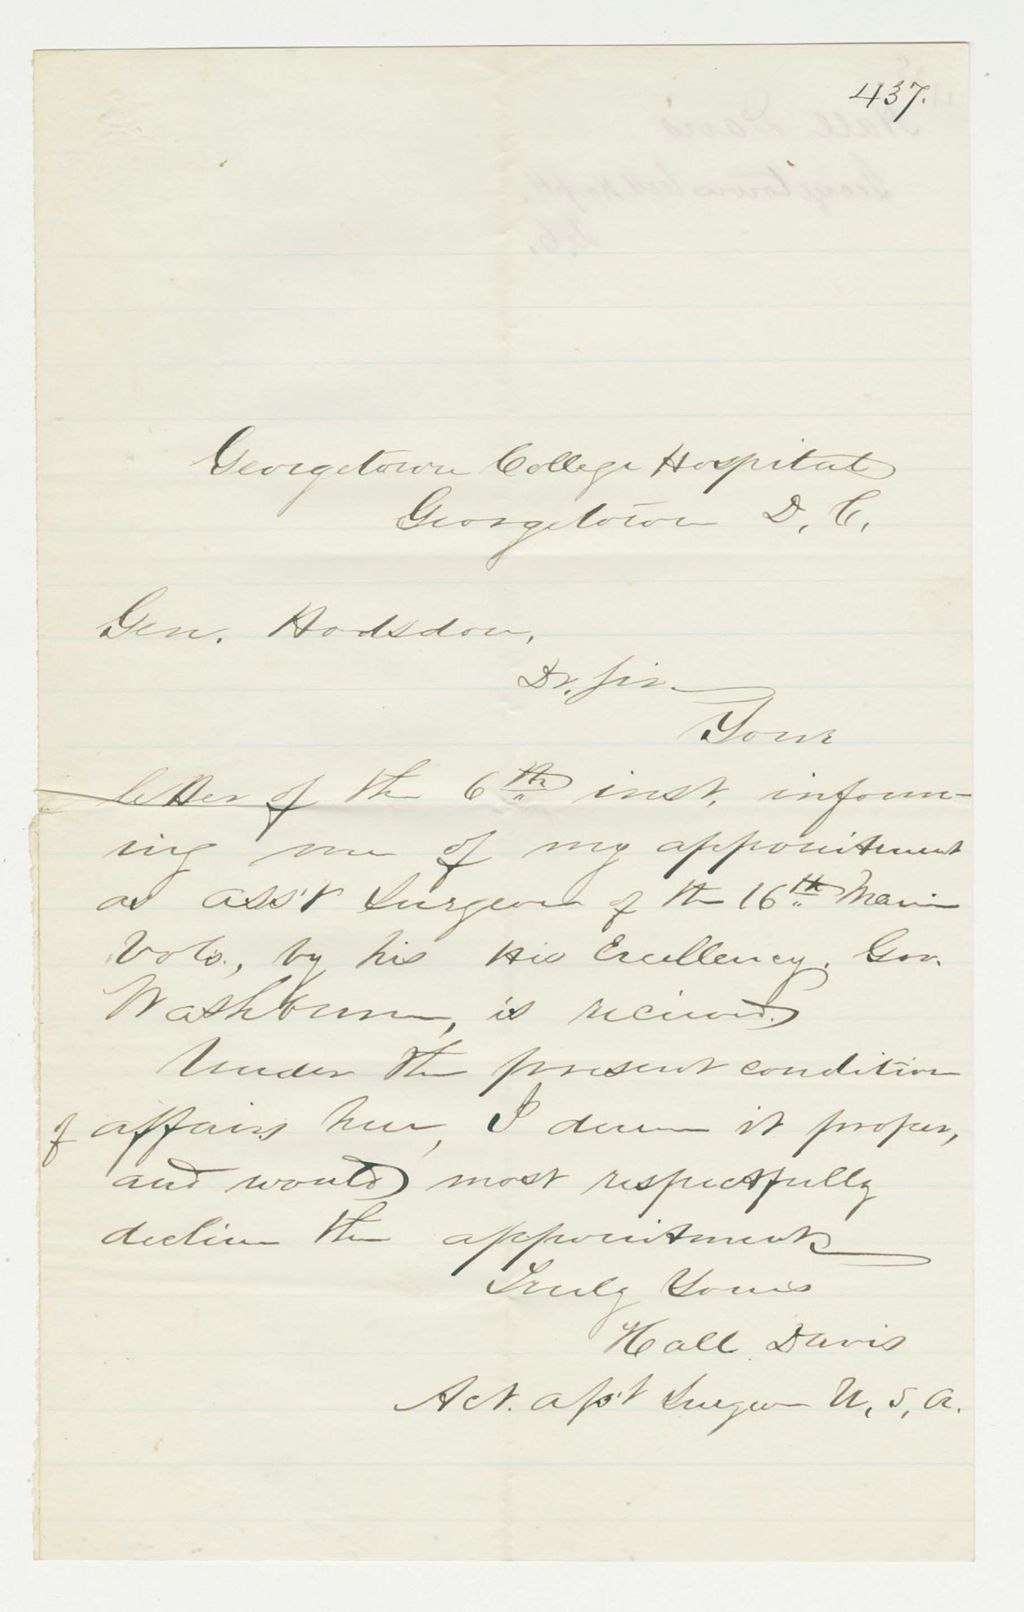 437.
Georgetown College Hospital
Georgetown D. C.
Gen. Hodsdon,
Dr. Sir
Your
letter of the 6th inst. inform-
ing me of my appointment
as ass't Surgeon of the 16th Maine
Vols., by his His Excellency, Gov.
Washburn, is recieved.
Under the present condition
of affairs here, I deem it proper,
and would most respectfully
decline the appointment
Truly Yours
Hall Davis
Act. ass't Surgeon U, S, A.